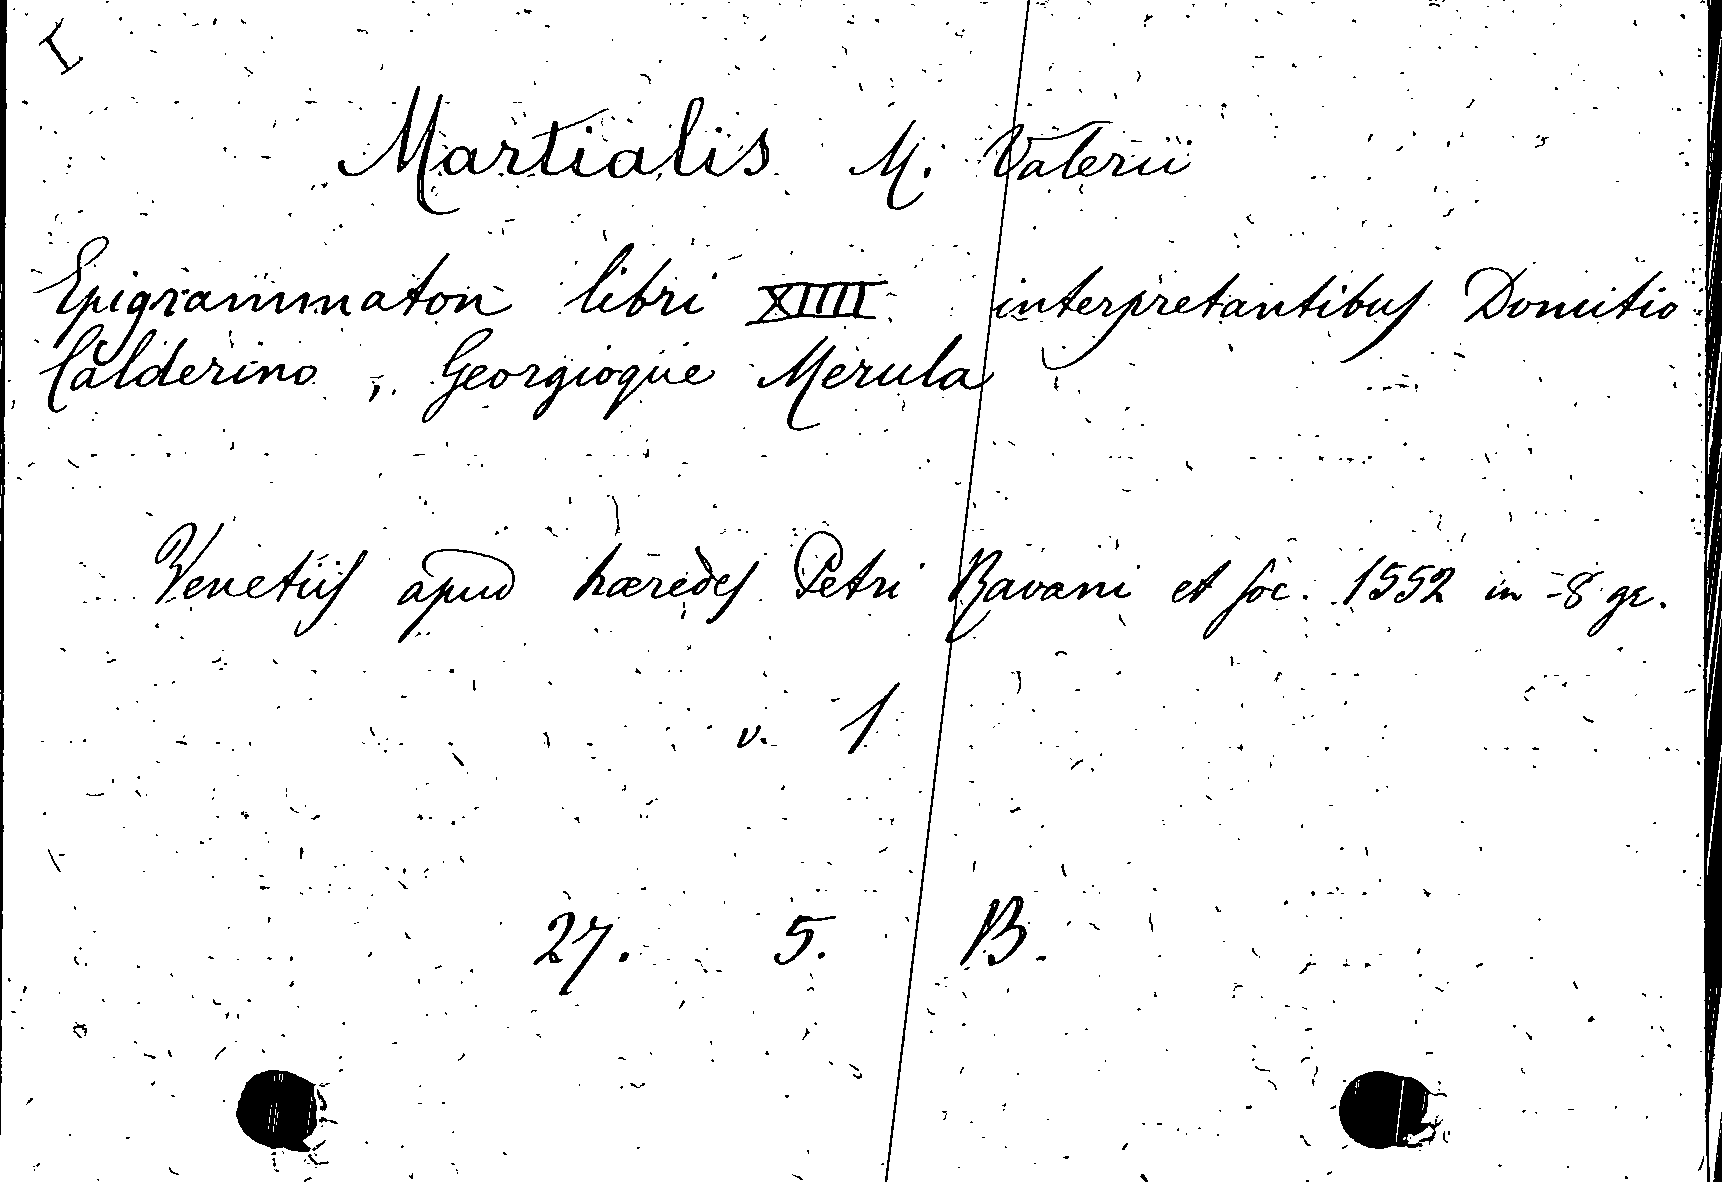 I
Martialis M. Valerii
Epigrammaton libri XIIII interpretantibus Domitio
Calderino, Georgioque Merula
Venetiis apud hæredes Petri Ravani et soc. 1552 in-8 gr.
v. 1
27. 5. B.